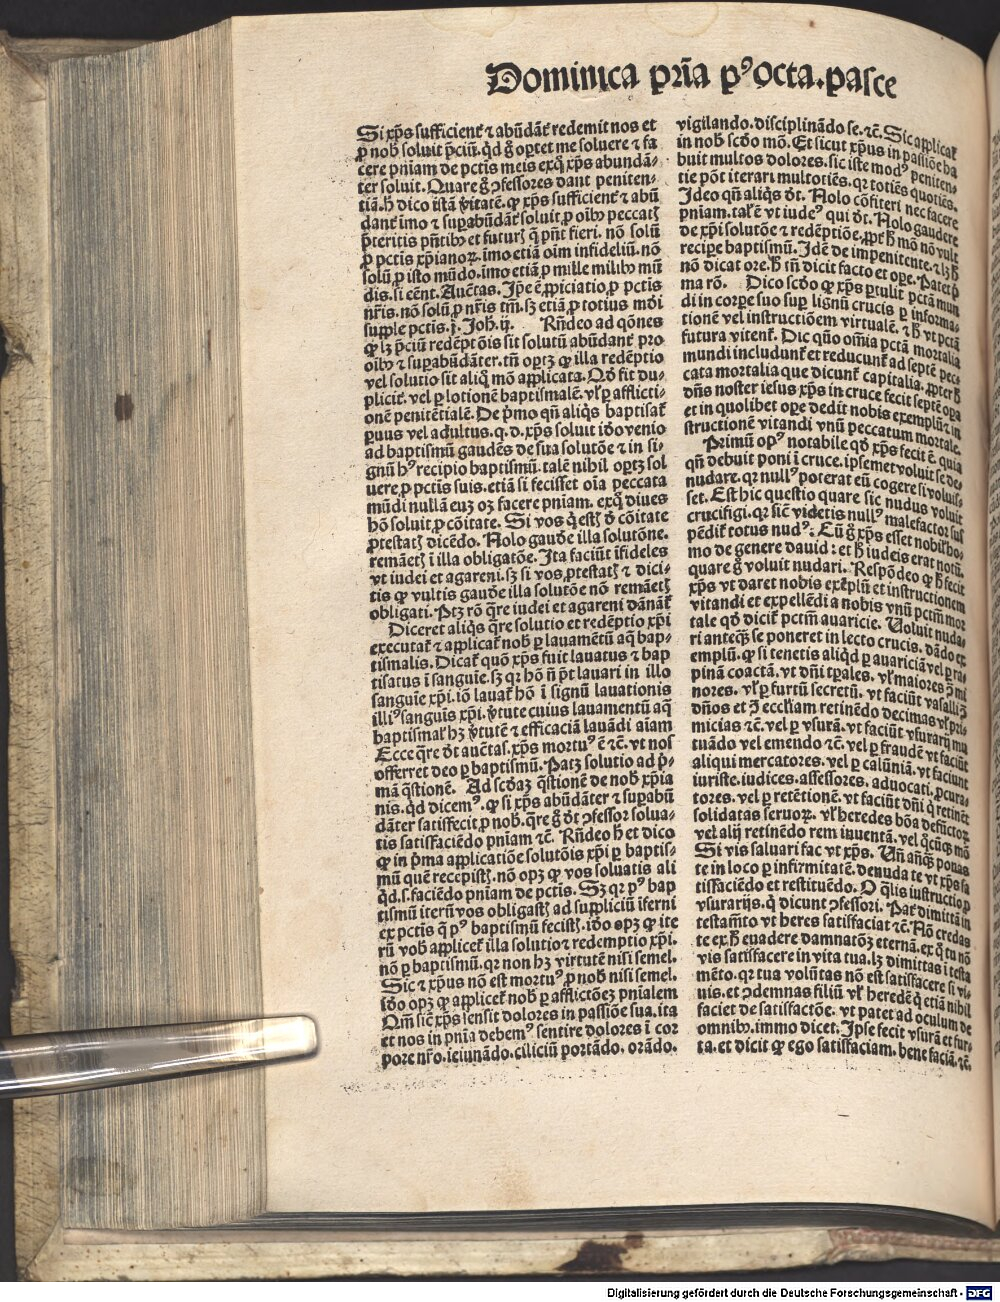 Dominica prīa pꝰ octa. pasce
Si xp̄s sufficient̄ ⁊ abūdāt̄ redemit nos et
ꝓ nob̄ soluit p̄ciū. qd̄ g̊ oꝑtet me soluere ⁊ fa
cere pn̄iam de pctīs meis exq̄ xp̄s abundā-
ter soluit. Quare g̊ ꝯfessores dant peniten-
tiā. h̄ dico istā v̄itatē. ꝙ xp̄s sufficient̄ ⁊ abū
dant̄ imo ⁊ suꝑabūdāt̄ soluit ꝓ oībꝰ peccatꝭ
p̄teritis pn̄tibꝰ et futurꝭ q̄ pn̄t fieri. nō solū
ꝓ pctīs xp̄ianoꝝ. imo etiā oīm infideliū. nō
solū ꝓ isto mūdo. imo etiā ꝓ mille milibꝰ mū
dis. si eēnt. Auc̄tas. Ip̄e ē ꝓpiciatio ꝓ pctīs
nr̄is. nō solū ꝓ nr̄is tm̄. sꝫ etiā ꝓ totius mūdi
supple pctīs. j. Joh̄. ij. Rn̄deo ad qōnes
ꝙ lꝫ p̄ciū redēptōis sit solutū abūdant̄ pro
oībꝰ ⁊ suꝑabūdāter. tn̄ oꝑtꝫ ꝙ illa redēptio
vel solutio sit aliq̊ mō applicata. Qd̄ fit du-
plicit̄. vel ꝑ lotionē baptismalē. vl̄ ꝑ afflicti-
onē penitētialē. De p̄mo qn̄ aliqs baptisat̄
ꝑuus vel adultus. q. d. xp̄s soluit id̄o venio
ad baptismū gaudēs de sua solutōe ⁊ in si-
gnū hꝰ recipio baptismū. talē nihil oꝑtꝫ sol
uere ꝓ pctīs suis. etiā si fecisset oīa peccata
mūdi nullā euꝫ oꝫ facere pn̄iam. exq̄ diues
hō soluit ꝓ cōitate. Si vos q̄ estꝭ d̄ cōitate
ꝓtestatꝭ dicēdo. Nolo gaud̄e illa solutōne.
remāetꝭ ī illa obligatōe. Ita faciūt īfideles
vt iudei et agareni. sꝫ si vos ꝓtestatꝭ ⁊ dici-
tis ꝙ vultis gaud̄e illa solutōe nō remāetꝭ
obligati. Ptꝫ rō q̄re iudei et agareni dānāt̄
Diceret aliqs q̄re solutio et redēptio xp̄i
executat̄ ⁊ applicat̄ nob̄ ꝑ lauamētū aq̄ bap-
tismalis. Dicat̄ quō xp̄s fuit lauatus ⁊ bap
tisatus ī sanguīe. sꝫ qꝛ hō n̄ pōt lauari in illo
sanguīe xp̄i. iō lauat̄ hō ī signū lauationis
illiꝰ sanguīs xp̄i. v̄tute cuius lauamentū aq̄
baptismal̄ hꝫ v̄tutē ⁊ efficaciā lauādi aīam
Ecce q̄re d̄t auc̄tas. xp̄s mortuꝰ ē ⁊c̄. vt nos
offerret deo ꝑ baptismū. Patꝫ solutio ad p̄-
mā q̄stionē. Ad scd̄aꝫ q̄stionē de nob̄ xp̄ia
nis. qd̄ dicemꝰ. ꝙ si xp̄s abūdāter ⁊ suꝑabū
dāter satisfecit ꝓ nob̄. q̄re g̊ d̄t ꝯfessor solua-
tis satisfaciēdo pn̄iam ⁊c̄. Rn̄deo h̄ et dico
ꝙ in p̄ma applicatiōe solutōis xp̄i ꝑ baptis-
mū quē recepistꝭ. nō opꝫ ꝙ vos soluatis ali
qd̄. s. faciēdo pn̄iam de pctīs. Sꝫ qꝛ pꝰ bap
tismū iterū vos obligastꝭ ad suppliciū īferni
ex pctīs q̄ pꝰ baptismū fecistꝭ. id̄o opꝫ ꝙ ite
rū vob̄ applicet̄ illa solutio ⁊ redemptio xp̄i.
nō ꝑ baptismū. qꝛ non hꝫ virtutē nisi semel.
Sic ⁊ xp̄us nō est mortuꝰ ꝓ nob̄ nisi semel.
id̄o opꝫ ꝙ applicet̄ nob̄ ꝑ afflictōeꝫ pn̄ialem
Qm̄ sic̄ xp̄s sensit dolores in passiōe sua. ita
et nos in pn̄ia debemꝰ sentire dolores ī cor
pore nr̄o. ieiunādo. ciliciū portādo. orādo.
vigilando. disciplinādo se. ⁊c̄. Sic applicat̄
in nob̄ scd̄o mō. Et sicut xp̄us in passiōe ha
buit multos dolores. sic iste modꝰ peniten-
tie pōt iterari multotiēs. qꝛ totiēs quotiēs.
Ideo qn̄ aliqs d̄t. Nolo cōfiteri nec facere
pniam. tal̄ ē vt iudeꝰ qui d̄t. Nolo gaudere
de xp̄i solutōe ⁊ redēptiōe. ꝓpt̄ h̄ mō nō vult
recipe baptismū. Idē de impenitente. ⁊ lꝫ h̄
nō dicat ore. h̄ tn̄ dicit facto et oꝑe. Patet p̄
ma rō. Dico scd̄o ꝙ xp̄s ꝑtulit pctā mun
di in corꝑe suo suꝑ lignū crucis ꝑ informa-
tionē vel instructiōem virtualē. ⁊ h̄ vt pctā
futura vitent̄. Dic quō om̄ia pctā mortalia
mundi includunt̄ et reducunt̄ ad septē pec-
cata mortalia que dicunt̄ capitalia. ꝓpter h̄
dn̄s noster iesus xp̄s in cruce fecit septē oꝑa
et in quolibet oꝑe dedit nobis exemplū ⁊ in
structionē vitandi vnū peccatum mortale.
Primū opꝰ notabile qd̄ xp̄s fecit ē. quia
qn̄ debuit poni ī cruce. ipsemet voluit se de-
nudare. qꝛ nullꝰ poterat eū cogere si voluis-
set. Est hic questio quare sic nudus voluit
crucifigi. qꝛ sic̄ videtis nullꝰ malefactor sus
pēdit̄ totus nudꝰ: Cū g̊ xp̄s esset nobil̄ ho-
mo de genere dauid: et h̄ iudeis erat notū.
quare g̊ voluit nudari. Respōdeo ꝙ h̄ fecit
xp̄s vt daret nobis exēplū et instructionem
vitandi et expellēdi a nobis vnū pctm̄ mor
tale qd̄ dicit̄ pctm̄ auaricie. Voluit nuda-
ri anteqꝫ se poneret in lecto crucis. dādo ex
emplū. ꝙ si tenetis aliqd̄ ꝑ auariciā vel ꝑ ra-
pinā coactā. vt dn̄i tꝑales. vl̄ maiores p̄ mi
nores. vl̄ ꝑ furtū secretū. vt faciūt vasalli ꝯ
dn̄os et ī eccl̄iam retinēdo decimas vl̄ pri-
micias ⁊c̄. vel ꝑ vsurā. vt faciūt vsurarij mu
tuādo vel emendo ⁊c̄. vel ꝑ fraudē vt faciūt
aliqui mercatores. vel ꝑ calūniā. vt faciunt
iuriste. iudices. assessores. aduocati. ꝓcura-
tores. vel ꝑ retētionē. vt faciūt dn̄i q̄ retinēt
solidatas seruoꝝ. vl̄ heredes bōa defūctoꝝ
vel alij retinēdo rem inuentā. vel q̊cūqꝫ mō
Si vis saluari fac vt xp̄s. Vn̄ anteqꝫ ponas
te in loco ꝑ infirmitatē. denuda te vt xp̄s sa
tisfaciēdo et restituēdo. O q̄lis instructio ꝓ
vsurarijs. q̄ dicunt ꝯfessori. Pat̄ dimittā in
testam̄to vt heres satisfaciat ⁊c̄. Nō credas
te ex h̄ euadere damnatōꝫ eternā. ex q̊ tu nō
vis satisfacere in vita tua. lꝫ dimittas ī testa
mēto. qꝛ tua volūtas nō est satisfacere si vi-
uis. et ꝯdemnas filiū vl̄ heredē q̄ etiā nihil
faciet de satisfactōe. vt patet ad oculum de
omnibꝰ. immo dicet. Ipse fecit vsurā et fur-
ta. et dicit ꝙ ego satisfaciam. bene faciā. ⁊c̄.
Digitalisierung gefördert durch die Deutsche Forschungsgemeinschaft - DFG